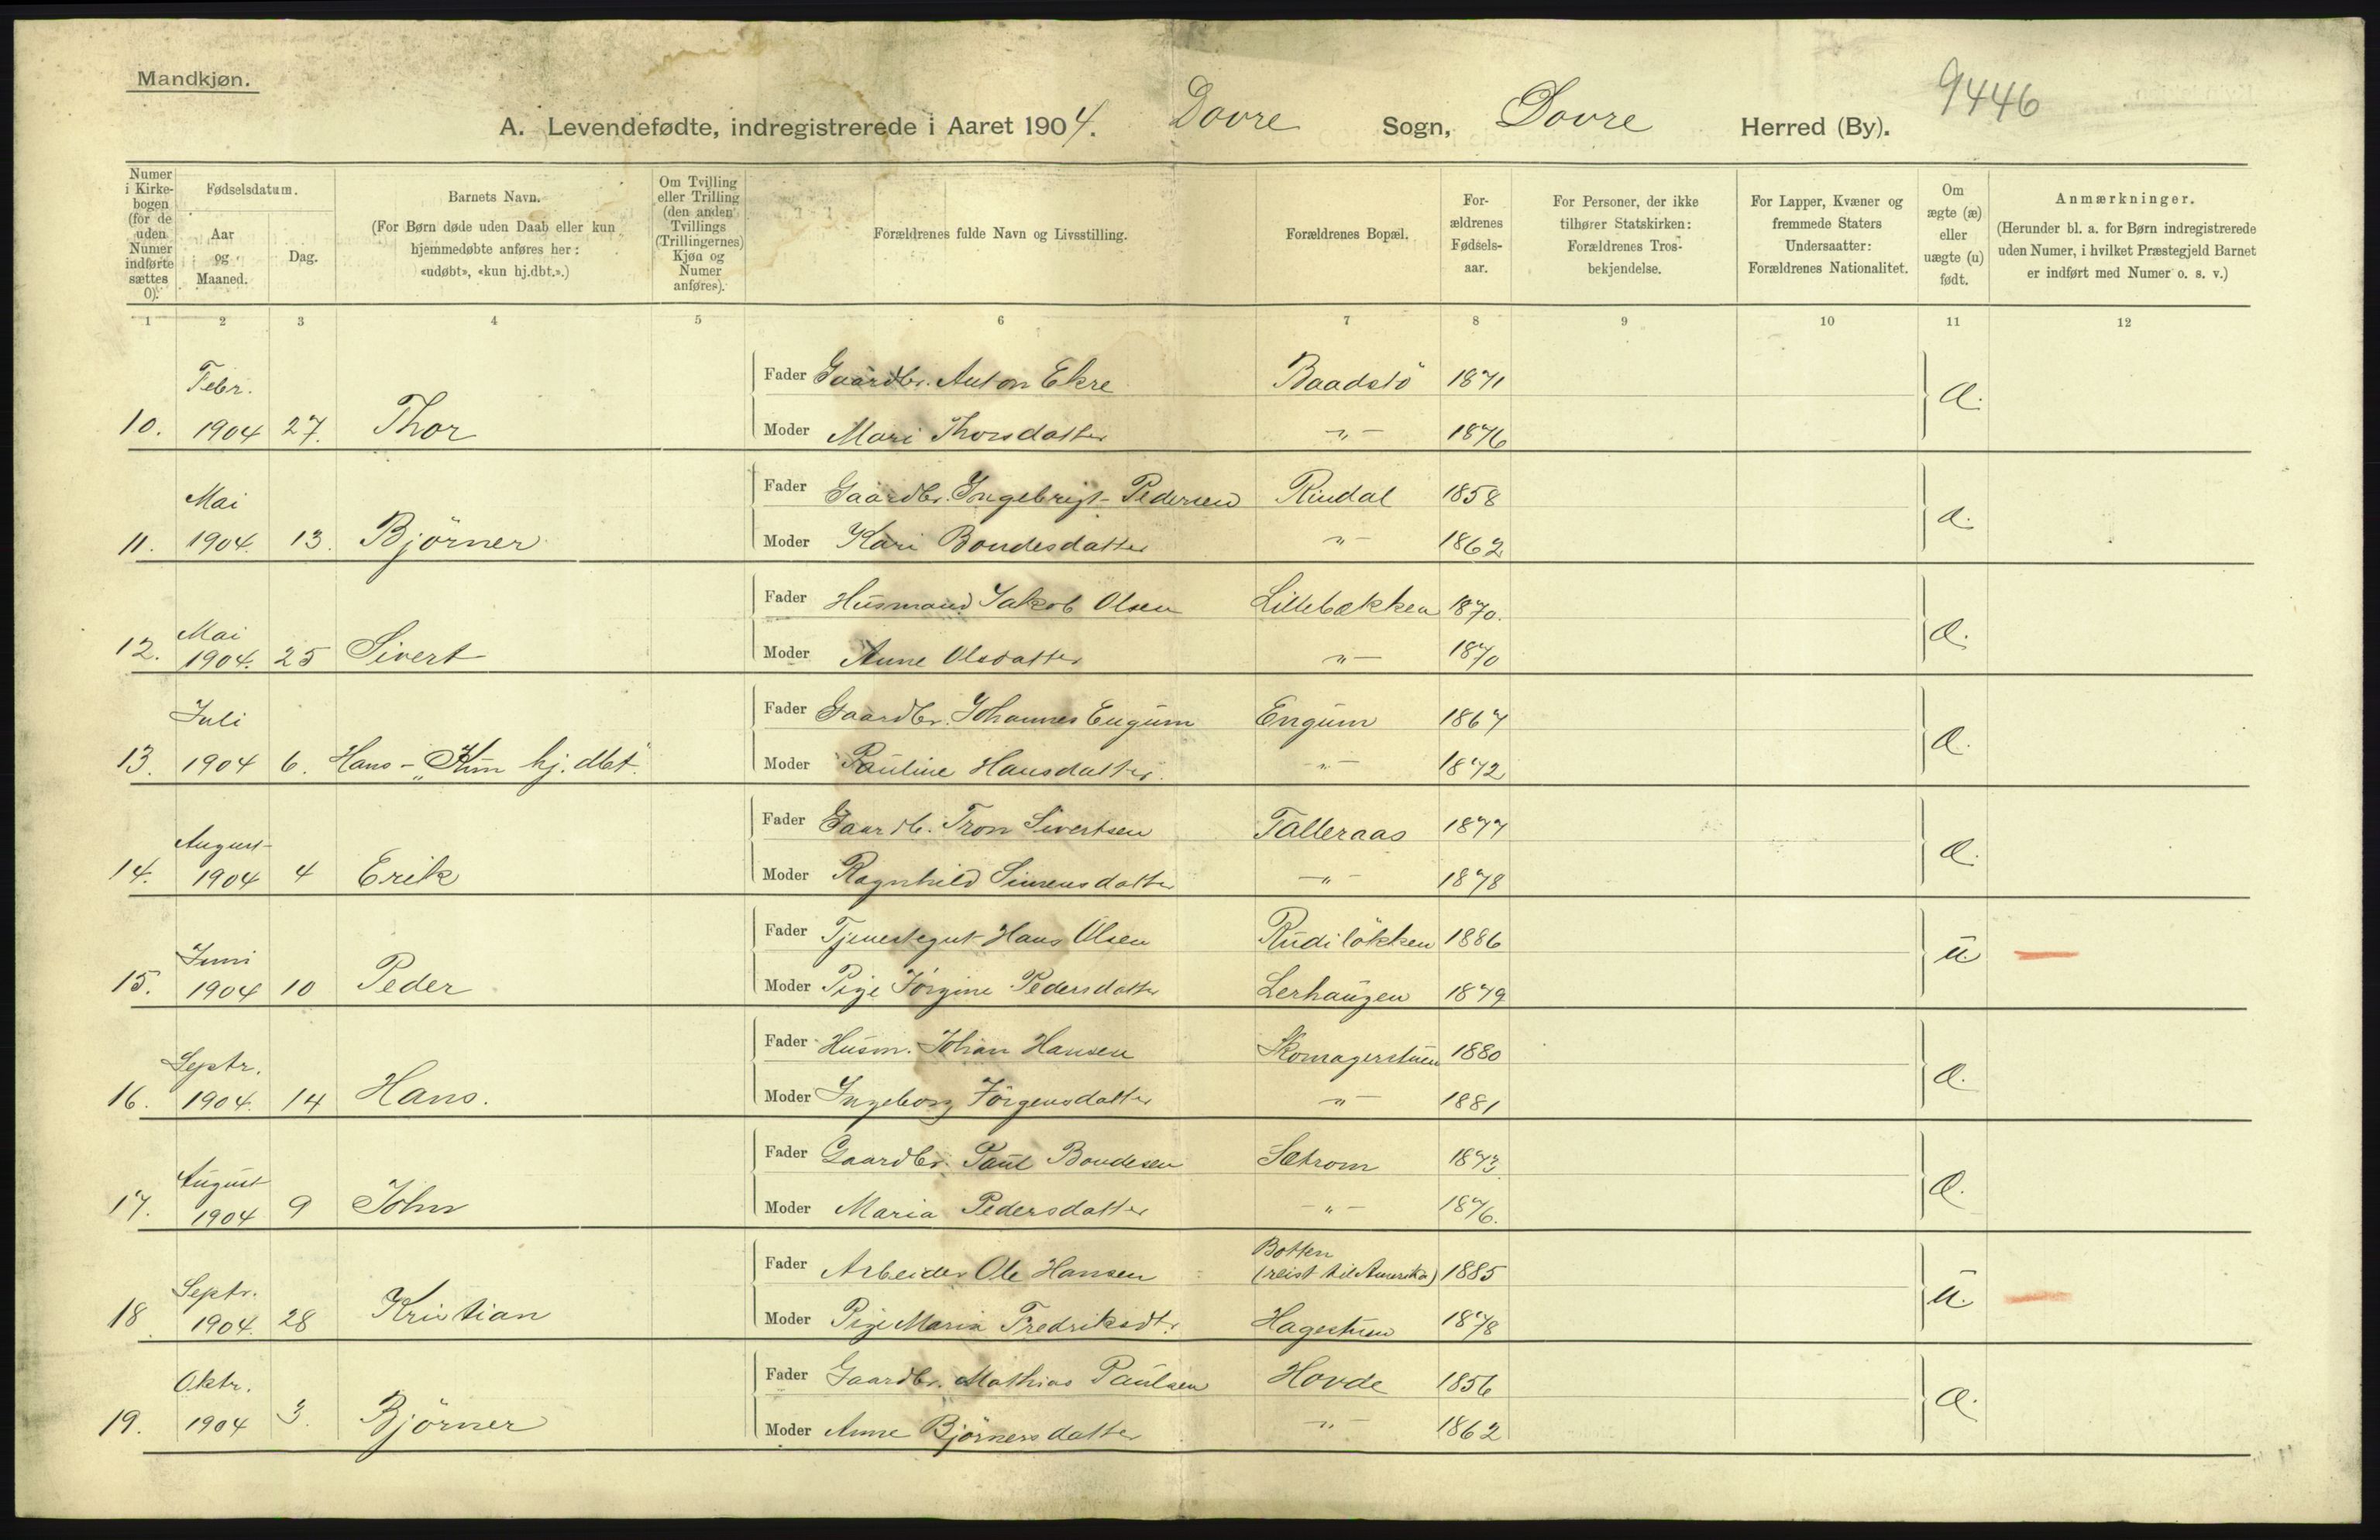 Mandkjøn.
9446
A. Levendefødte, indregistrerede i Aaret 1904. Dovre Sogn, Dovre Herred (By).
Numer i Kirkebogen (for de uden Numer indførte sættes 0).
Fødselsdatum.
Aar og Maaned.
Dag.
Barnets Navn.
(For Børn døde uden Daab eller kun hjemmedøbte anføres her: «udøbt», «kun hj.dbt.».)
Om Tvilling eller Trilling (den anden Tvillings (Trillingernes) Kjøn og Numer anføres).
Forældrenes fulde Navn og Livsstilling.
Forældrenes Bopæl.
Forældrenes Fødselsaar.
For Personer, der ikke tilhører Statskirken: Forældrenes Trosbekjendelse.
For Lapper, Kvæner og fremmede Staters Undersaatter: Forældrenes Nationalitet.
Om ægte (æ) eller uægte (u) født.
Anmærkninger.
(Herunder bl. a. for Børn indregistrerede uden Numer, i hvilket Præstegjeld Barnet er indført med Numer o. s. v.)
1 2 3 4 5 6 7 8 9 10 11 12
Febr. Fader Gaardbr. Anton Ekre Baadstö 1871 Æ.
10. 1904 27. Thor Moder Mari Thorsdatter -„- 1876
Mai Fader Gaardbr. Ingebrigt Pedersen Rindal 1858 Æ.
11. 1904. 13. Björner Moder Kari Bondesdatter -„- 1862
Mai Fader Husmand Jakob Olsen Lillebækken 1870. Æ.
12. 1904. 25 Sivert Moder Anne Olsdatter -„- 1870
Juli Fader Gaardbr. Johannes Engum Engum 1867 Æ.
13. 1904 6. Hans - „Kun hj. dbt". Moder Pauline Hansdatter. -„- 1872
August Fader Gaardb. Tron Sivertsen Talleraas 1877 Æ.
14. 1904 4 Erik Moder Ragnhild Simensdatter -„- 1878
Juni Fader Tjenestegut Hans Olsen Rudiløkken 1886 u.
15. 1904 10 Peder Moder Pige Jörgine Pedersdatter Lerhaugen 1879
Septr. Fader Husm. Johan Hansen Skomagerstuen 1880 Æ.
16. 1904. 14 Hans. Moder Ingeborg Jörgensdatter -„- 1881
August Fader Gaardbr. Paul Bondesen Sætrom 1873. Æ.
17. 1904 9 John Moder Maria Pedersdatter -„- 1876.
Septr. Fader Arbeider Ole Hansen Botten (reist til Amerika) 1885 u.
18. 1904. 28 Kristian Moder Pige Maria Fredriksdtr. Hagestuen 1878
Oktr. Fader Gaardbr. Mathias Paulsen Hovde 1856 Æ.
19. 1904 3. Björner Moder Anne Björnersdatter -„- 1862